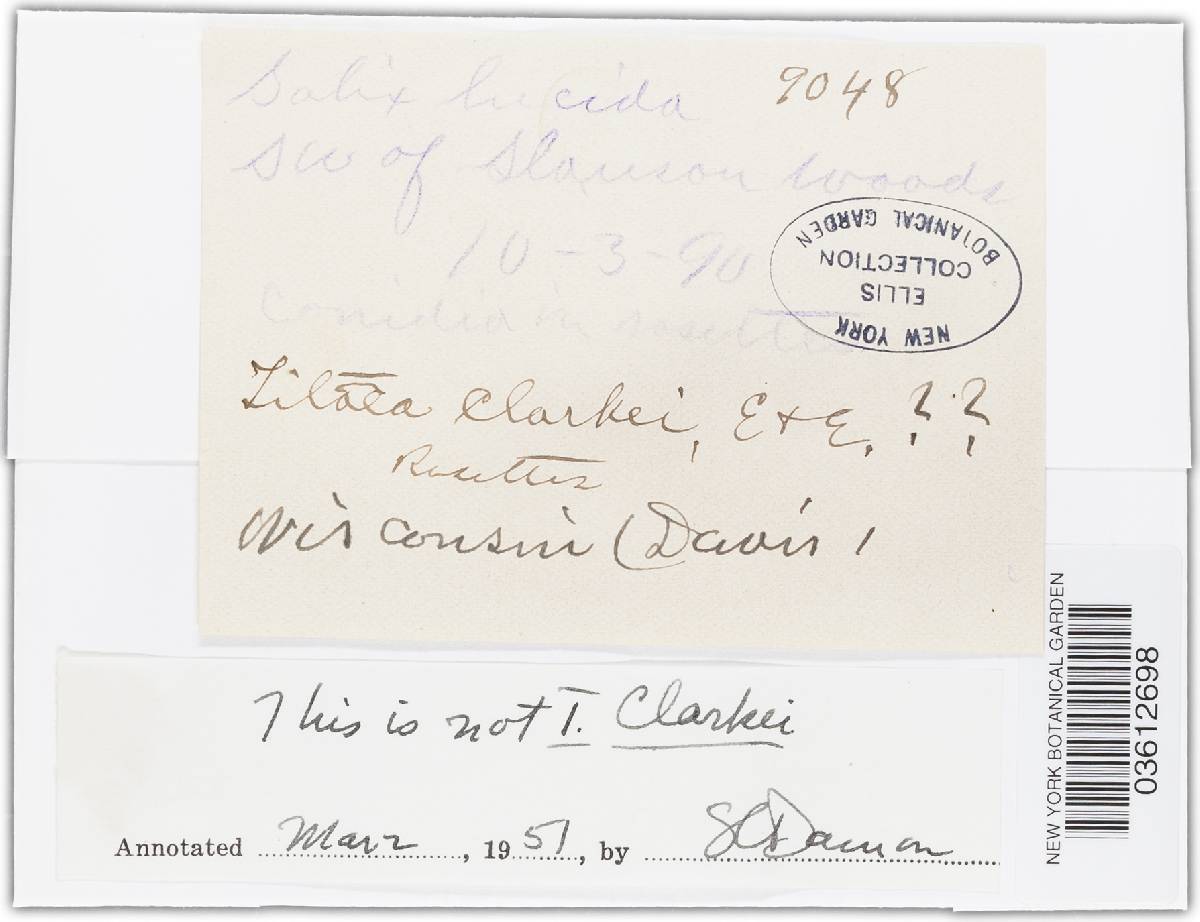 Salix lucida 9048
SW of Slauson Woods
10-3-90
conidia in rosettes
NEW YORK
ELLIS
COLLECTION
BOTANICAL GARDEN
Titaea Clarkei, E+E. ??
Rosettes
Wisconsin (Davis)
This is not T. Clarkei
Annotated Mar 2, 1951, by S C Damon
NEW YORK BOTANICAL GARDEN
03612698